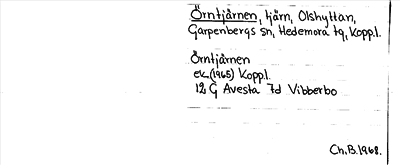 Örntjärnen, tjärn, Olshyttan,
Garpenbergs sn, Hedemora tg, Kopp.l.
Örntjärnen
ek. (1965) Kopp.l.
12 G Avesta 7d Vibberbo
Ch.B. 1968.